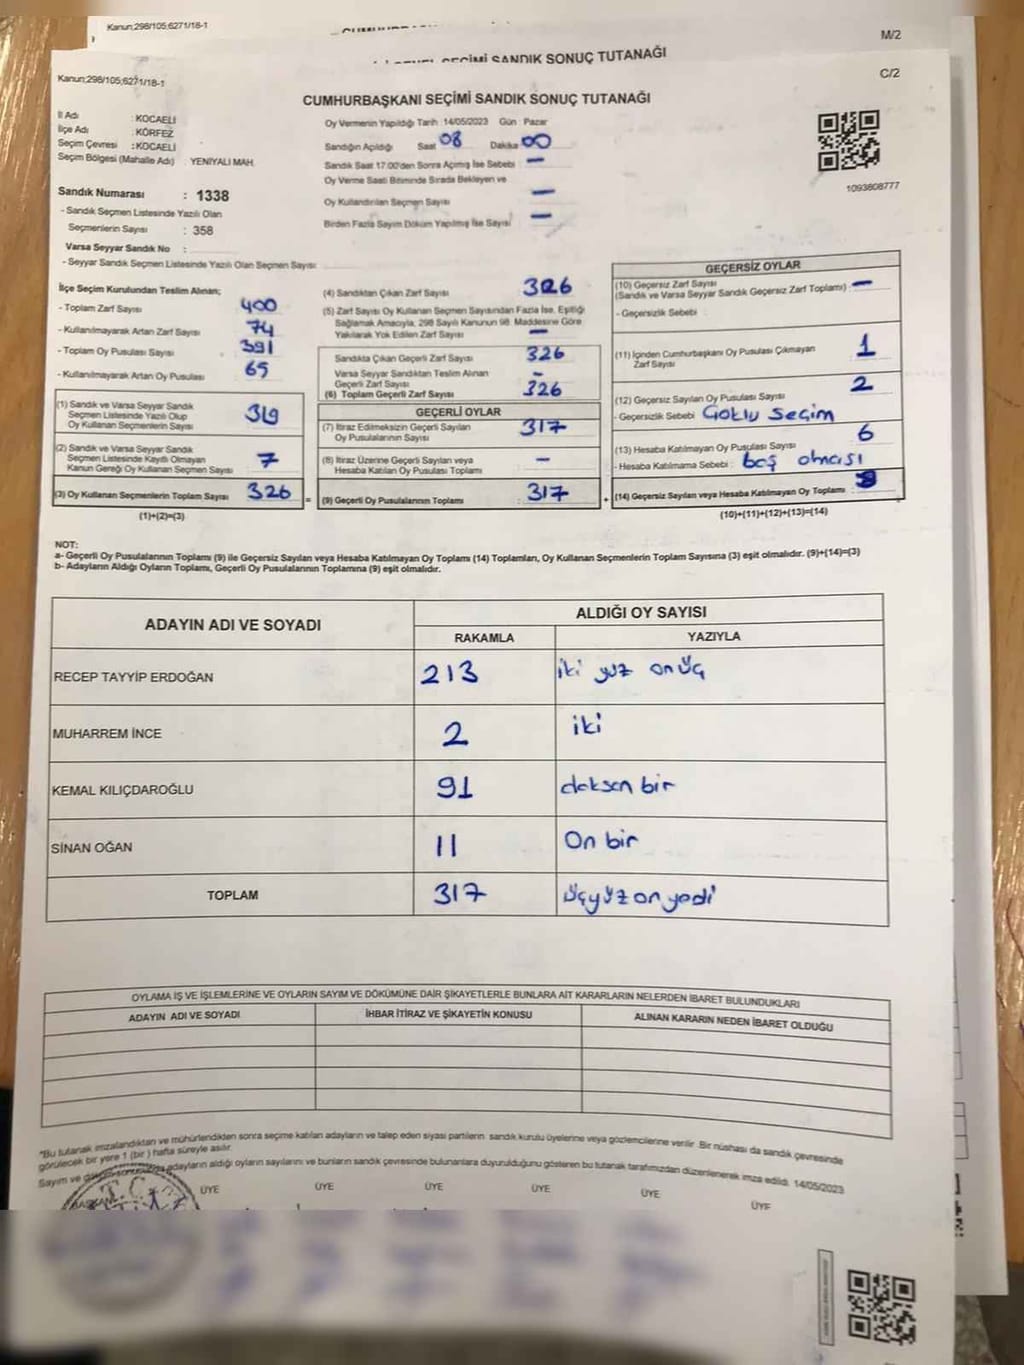 Kanun;298/105;6271/18-1
M/2
SEÇİMİ SANDIK SONUÇ TUTANAĞI
Kanun;298/105;6271/18-1
C/2
CUMHURBAŞKANI SEÇİMİ SANDIK SONUÇ TUTANAĞI
İl Adı : KOCAELİ
İlçe Adı : KÖRFEZ
Seçim Çevresi : KOCAELİ
Seçim Bölgesi (Mahalle Adı) : YENİYALI MAH.
Sandık Numarası : 1338
- Sandık Seçmen Listesinde Yazılı Olan
Seçmenlerin Sayısı : 358
Varsa Seyyar Sandık No :
- Seyyar Sandık Seçmen Listesinde Yazılı Olan Seçmen Sayısı:
Oy Vermenin Yapıldığı Tarih 14/05/2023 Gün : Pazar
Sandığın Açıldığı Saat 08 Dakika 00
Sandık Saat 17.00'den Sonra Açımış İse Sebebi : –
Oy Verme Saati Bitiminde Sırada Bekleyen ve
Oy Kullandırılan Seçmen Sayısı –
Birden Fazla Sayım Döküm Yapılmış İse Sayısı –
1093808777
İlçe Seçim Kurulundan Teslim Alınan;
- Toplam Zarf Sayısı 400
- Kullanılmayarak Artan Zarf Sayısı 74
- Toplam Oy Pusulası Sayısı 391
- Kullanılmayarak Artan Oy Pusulası 65
(1) Sandık ve Varsa Seyyar Sandık
Seçmen Listesinde Yazılı Olup
Oy Kullanan Seçmenlerin Sayısı 319
(2) Sandık ve Varsa Seyyar Sandık
Seçmen Listesinde Kayıtlı Olmayan
Kanun Gereği Oy Kullanan Seçmen Sayısı 7
(3) Oy Kullanan Seçmenlerin Toplam Sayısı 326
(1)+(2)=(3)
(4) Sandıktan Çıkan Zarf Sayısı 326
(5) Zarf Sayısı Oy Kullanan Seçmen Sayısından Fazla İse, Eşitliği
Sağlamak Amacıyla, 298 Sayılı Kanunun 98. Maddesine Göre
Yakılarak Yok Edilen Zarf Sayısı –
Sandıkta Çıkan Geçerli Zarf Sayısı 326
Varsa Seyyar Sandıktan Teslim Alınan
Geçerli Zarf Sayısı –
(6) Toplam Geçerli Zarf Sayısı 326
GEÇERLİ OYLAR
(7) İtiraz Edilmeksizin Geçerli Sayılan
Oy Pusulalarının Sayısı 317
(8) İtiraz Üzerine Geçerli Sayılan veya
Hesaba Katılan Oy Pusulası Toplamı –
= (9) Geçerli Oy Pusulalarının Toplamı : 317
GEÇERSİZ OYLAR
(10) Geçersiz Zarf Sayısı
(Sandık ve Varsa Seyyar Sandık Geçersiz Zarf Toplamı) : –
- Geçersizlik Sebebi :
(11) İçinden Cumhurbaşkanı Oy Pusulası Çıkmayan
Zarf Sayısı 1
(12) Geçersiz Sayılan Oy Pusulası Sayısı 2
- Geçersizlik Sebebi : Çoklu seçim
(13) Hesaba Katılmayan Oy Pusulası Sayısı 6
- Hesaba Katılmama Sebebi : boş olması
+ (14) Geçersiz Sayılan veya Hesaba Katılmayan Oy Toplamı : 9
(10)+(11)+(12)+(13)=(14)
NOT:
a- Geçerli Oy Pusulalarının Toplamı (9) ile Geçersiz Sayılan veya Hesaba Katılmayan Oy Toplamı (14) Toplamları, Oy Kullanan Seçmenlerin Toplam Sayısına (3) eşit olmalıdır. (9)+(14)=(3)
b- Adayların Aldığı Oyların Toplamı, Geçerli Oy Pusulalarının Toplamına (9) eşit olmalıdır.
ADAYIN ADI VE SOYADI
ALDIĞI OY SAYISI
RAKAMLA YAZIYLA
RECEP TAYYİP ERDOĞAN 213 iki yüz onüç
MUHARREM İNCE 2 iki
KEMAL KILIÇDAROĞLU 91 doksan bir
SİNAN OĞAN 11 On bir
TOPLAM 317 üçyüz on yedi
OYLAMA İŞ VE İŞLEMLERİNE VE OYLARIN SAYIM VE DÖKÜMÜNE DAİR ŞİKAYETLERLE BUNLARA AİT KARARLARIN NELERDEN İBARET BULUNDUKLARI
ADAYIN ADI VE SOYADI
İHBAR İTİRAZ VE ŞİKAYETİN KONUSU
ALINAN KARARIN NEDEN İBARET OLDUĞU
*Bu tutanak imzalandıktan ve mühürlendikten sonra seçime katılan adayların ve talep eden siyasi partilerin sandık kurulu üyelerine veya gözlemcilerine verilir. Bir nüshası da sandık çevresinde
görülecek bir yere 1 (bir) hafta süreyle asılır.
Sayım ve adayların aldığı oyların sayılarını ve bunların sandık çevresinde bulunanlara duyurulduğunu gösteren bu tutanak tarafımızdan düzenlenerek imza edildi. 14/05/2023
T.C.
BAŞKAN ÜYE ÜYE ÜYE ÜYE ÜYE ÜYE